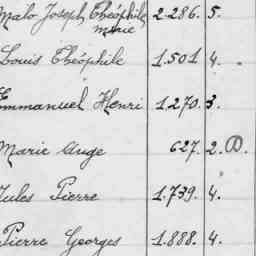 Malo Joseph Théophile 2.286. 5.
Marie
Louis Théophile 1.501 4.
Emmanuel Henri 1.270. 3.
Marie Ange 627. 2.
Jules Pierre 1.739. 4.
Pierre Georges 1.888. 4.